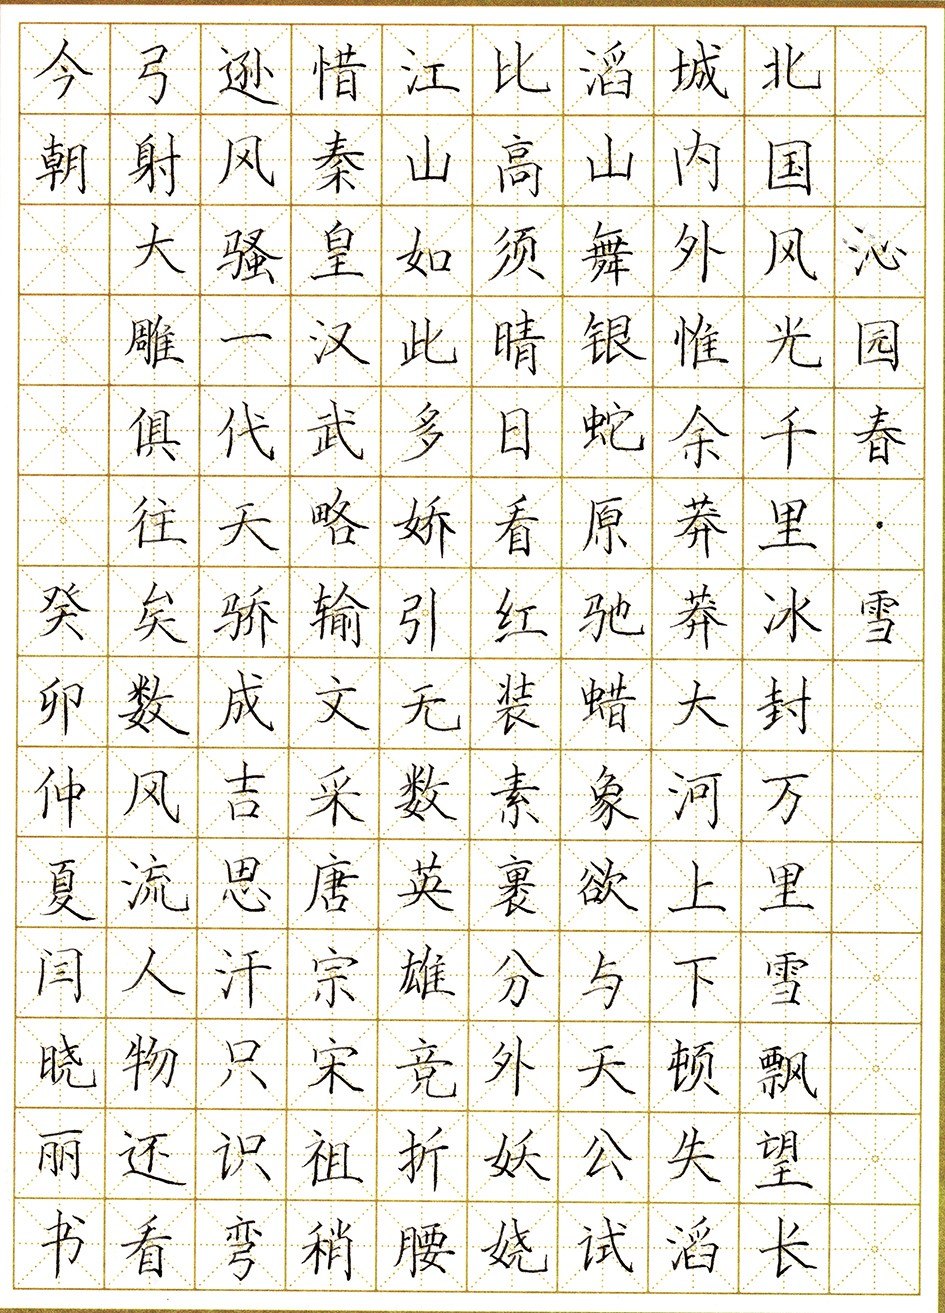 沁园春·雪
北国风光千里冰封万里雪飘望长
城内外惟余莽莽大河上下顿失滔
滔山舞银蛇原驰蜡象欲与天公试
比高须晴日看红装素裹分外妖娆
江山如此多娇引无数英雄竞折腰
惜秦皇汉武略输文采唐宗宋祖稍
逊风骚一代天骄成吉思汗只识弯
弓射大雕俱往矣数风流人物还看
今朝 癸卯仲夏闫晓丽书